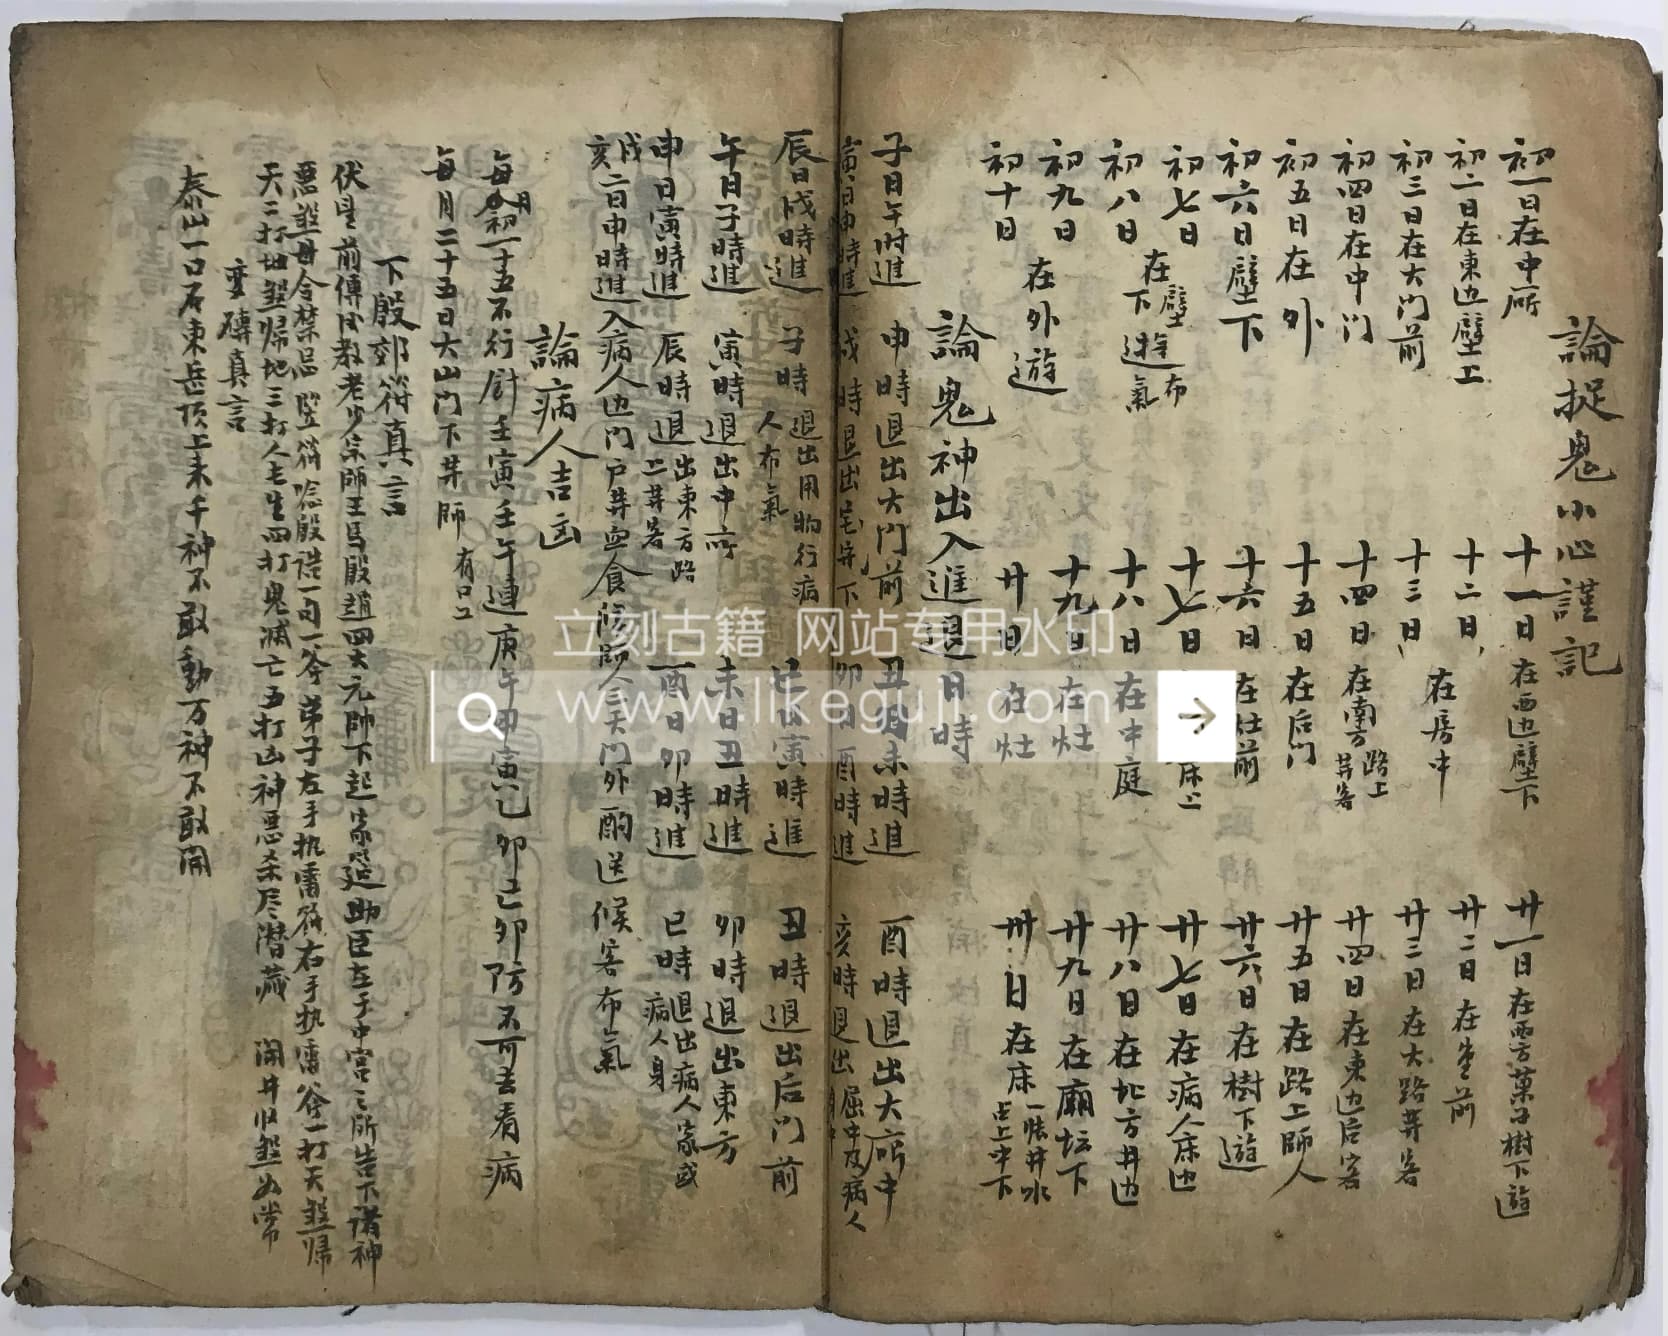 論捉鬼小心謹記
初一日在中所
十一日在西边壁下
廿一日在西方菓子樹下遊
初二日在東边壁上
十二日
廿二日在堂前
初三日在大门前
十三日
在房中
廿三日在大路井畧
初四日在中门
十四日在南方路上井畧
廿四日在東边后畧
初五日在外
十五日在后门
廿五日在路上師人
初六日壁下
十六日在灶前
廿六日在樹下遊
初七日
十七日
床上
廿七日在病人床边
初八日
在壁下遊布氣
十八日在中庭
廿八日在北方井边
初九日
十九日在灶
廿九日在廟坛下
初十日
在外遊
廿日在灶
卅日在床
論鬼神出入進退日時
子日午时進 申時退出大门前 丑日未時進 酉時退出大所中
寅日申時進 戌時退出宅井下 卯日酉時進 亥時退出屋中及病人
辰日戌時進 子時退出用物行病人布氣 巳日寅時進 丑時退出后门前
午日子時進 寅時退出中所 未日丑時進 卯時退出東方
申日寅時進 辰時退出東方路上井畧 酉日卯時進 巳時退出病人家或病人身
戌亥二日申時進入病人边门户井血食 師人三天门外酌送候畧布氣
論病人吉凶
每月初一十五不行 壬寅壬午連庚午甲寅己卯己卯防不可去看病
每月二十五日大山门下井師
下殷郊符真言
伏望前傳後教老少宗師王馬殷趙四大元帥下起家筵助臣左手中宮三所告下諸神
惡煞毋令禁忌 竪符唸殷諾一句一斧弟子左手执雷符右手执雷斧一打天煞歸
天二打地煞歸地三打人長生四打鬼滅亡五打凶神惡杀尽潜藏 開井归煞如常
变磚真言
泰山一口石東岳頂上来千神不敢動万神不敢開
立刻古籍 网站专用水印
www.likeguji.com